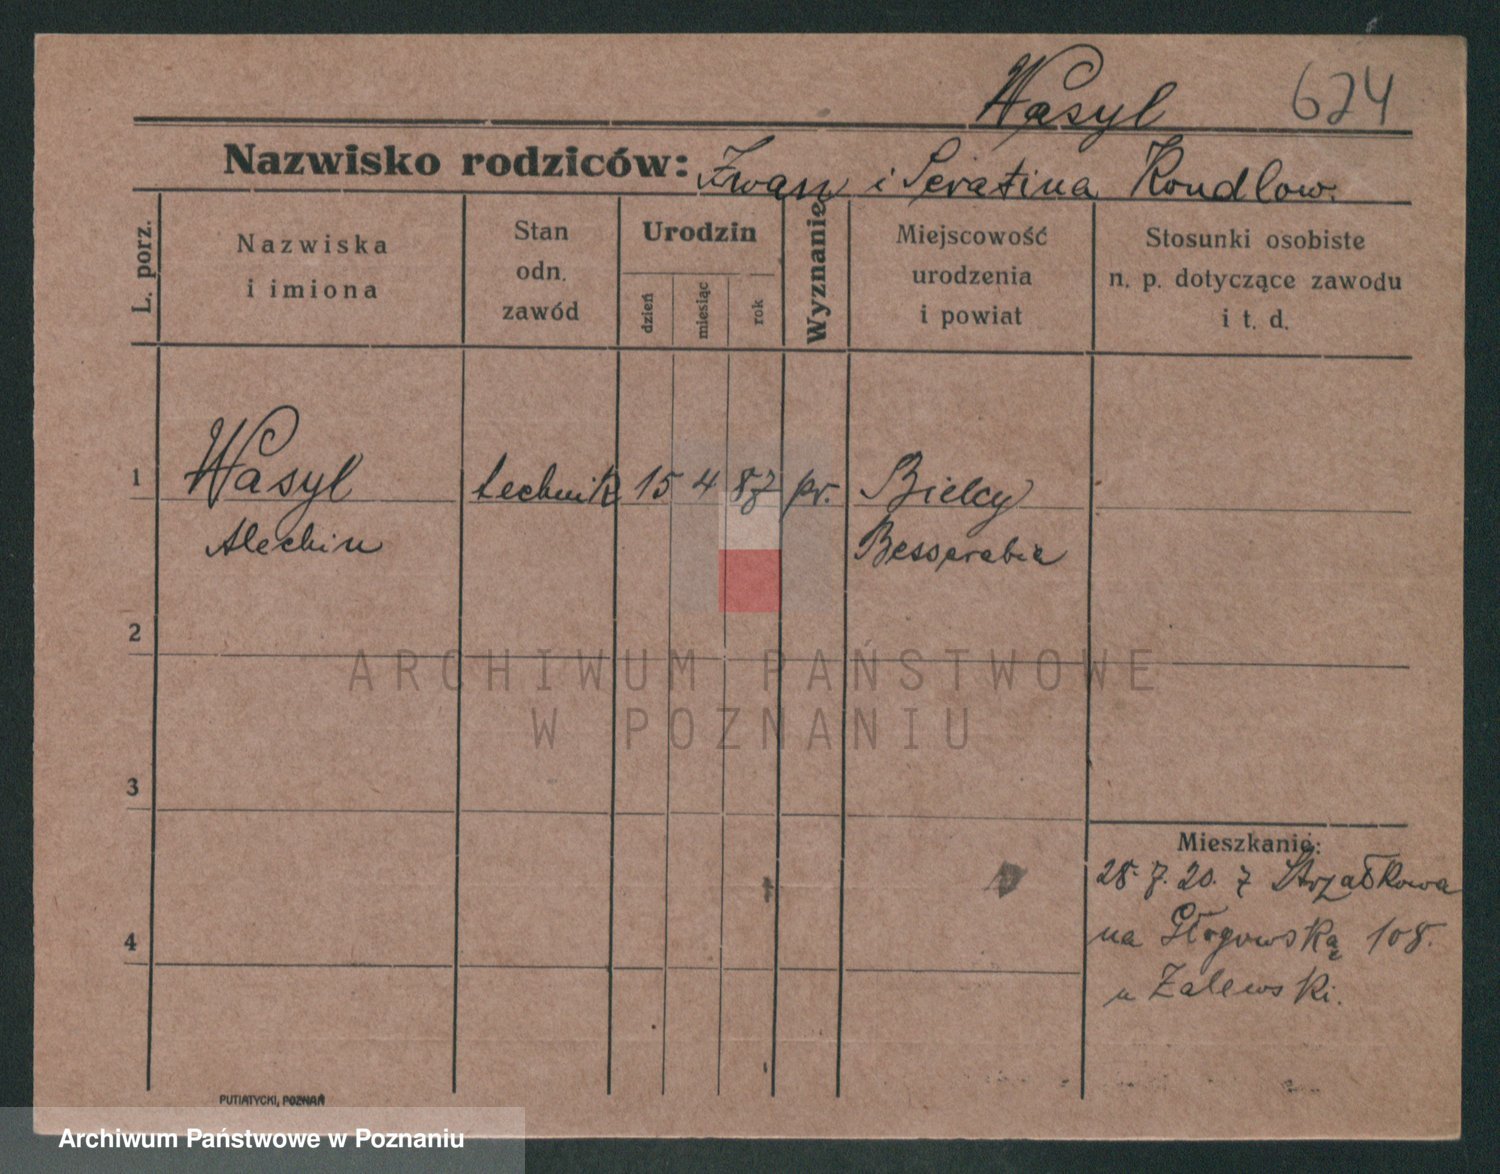 Wasyl 624
Nazwisko rodziców: Iwan i Serafina Kondlow.
L. porz.
Nazwiska
i imiona
Stan
odn.
zawód
Urodzin
dzień
miesiąc
rok
Wyznanie
Miejscowość
urodzenia
i powiat
Stosunki osobiste
n. p. dotyczące zawodu
i t. d.
1 Wasyl technik 15 4 87 pr. Bielcy
Alechin Bessarabia
2
ARCHIWUM PAŃSTWOWE
W POZNANIU
3
Mieszkanie:
28. 7. 20. z Strzałkowa
4 na Głogowską 108.
u Zalewski.
PUTIATYCKI, POZNAŃ
Archiwum Państwowe w Poznaniu